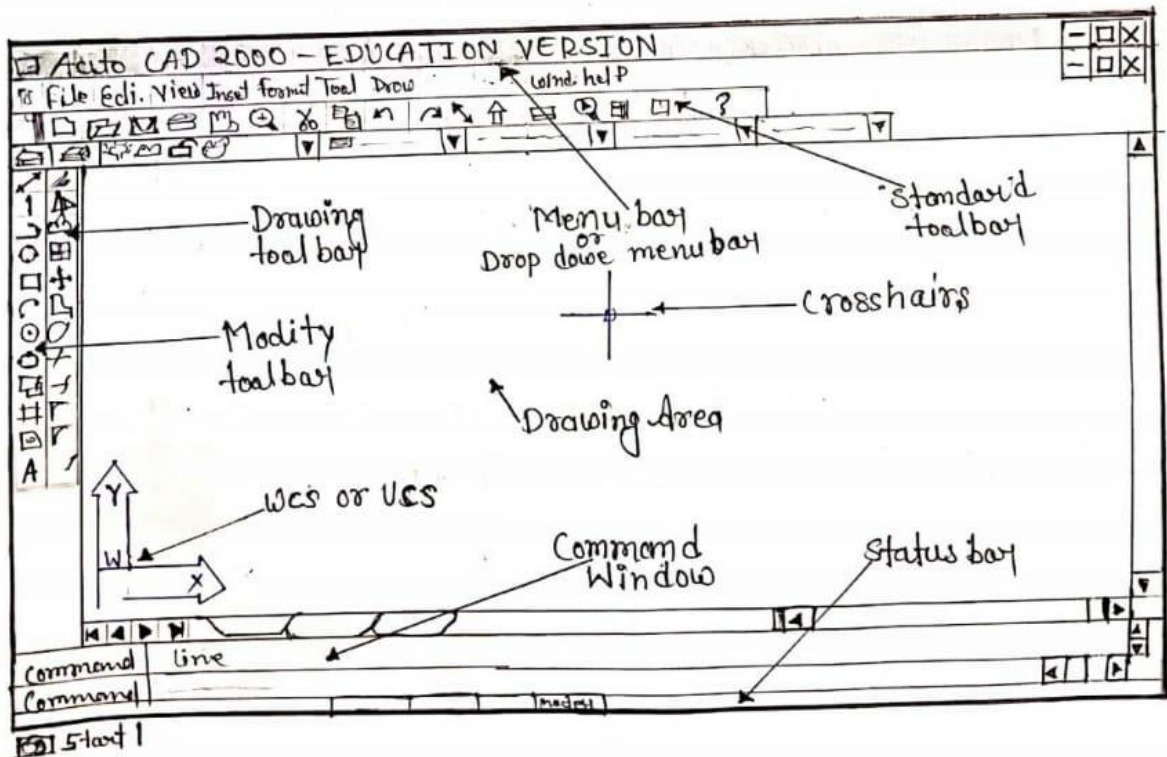 Auto CAD 2000 - EDUCATION VERSION
File Edi. View Inset formit Tool Drow Wind. help
?
Drawing
toolbar
Menu bar
or
Drop dowe menubar
Standard
toolbar
Crosshairs
Modity
toolbar
Drawing Area
A
Y
W
X
Wcs or Ucs
Command
Window
Status bar
Command line
Command
model
Start 1